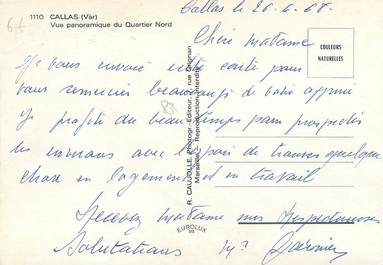 6,1€
1110 CALLAS (Vàr)
Vue panoramique du Quartier Nord
Callas le 26-6-68.
Chère Madame
COULEURS
NATURELLES
Je vous envoie cette carte pour
vous remercier beaucoup de votre appui
Je profite du beau temps pour prospecter
les environs avec l'espoir de trouver quelque
chose en logement et en travail
Recevez Madame mes respectueuses
Salutations
R. CAUJOLLE, Photogr.-Editeur, rue Grignan
Marseille - Reproduction interdite
EUROLUX